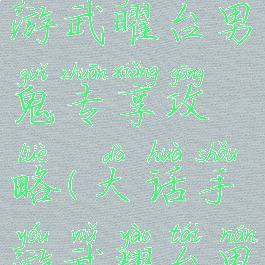 游武曜台男
guǐ zhuān xiǎng gōng
鬼专享攻
lüè dà huà shǒu
略(大话手
yóu wǔ yào tái nán
游武曜台男